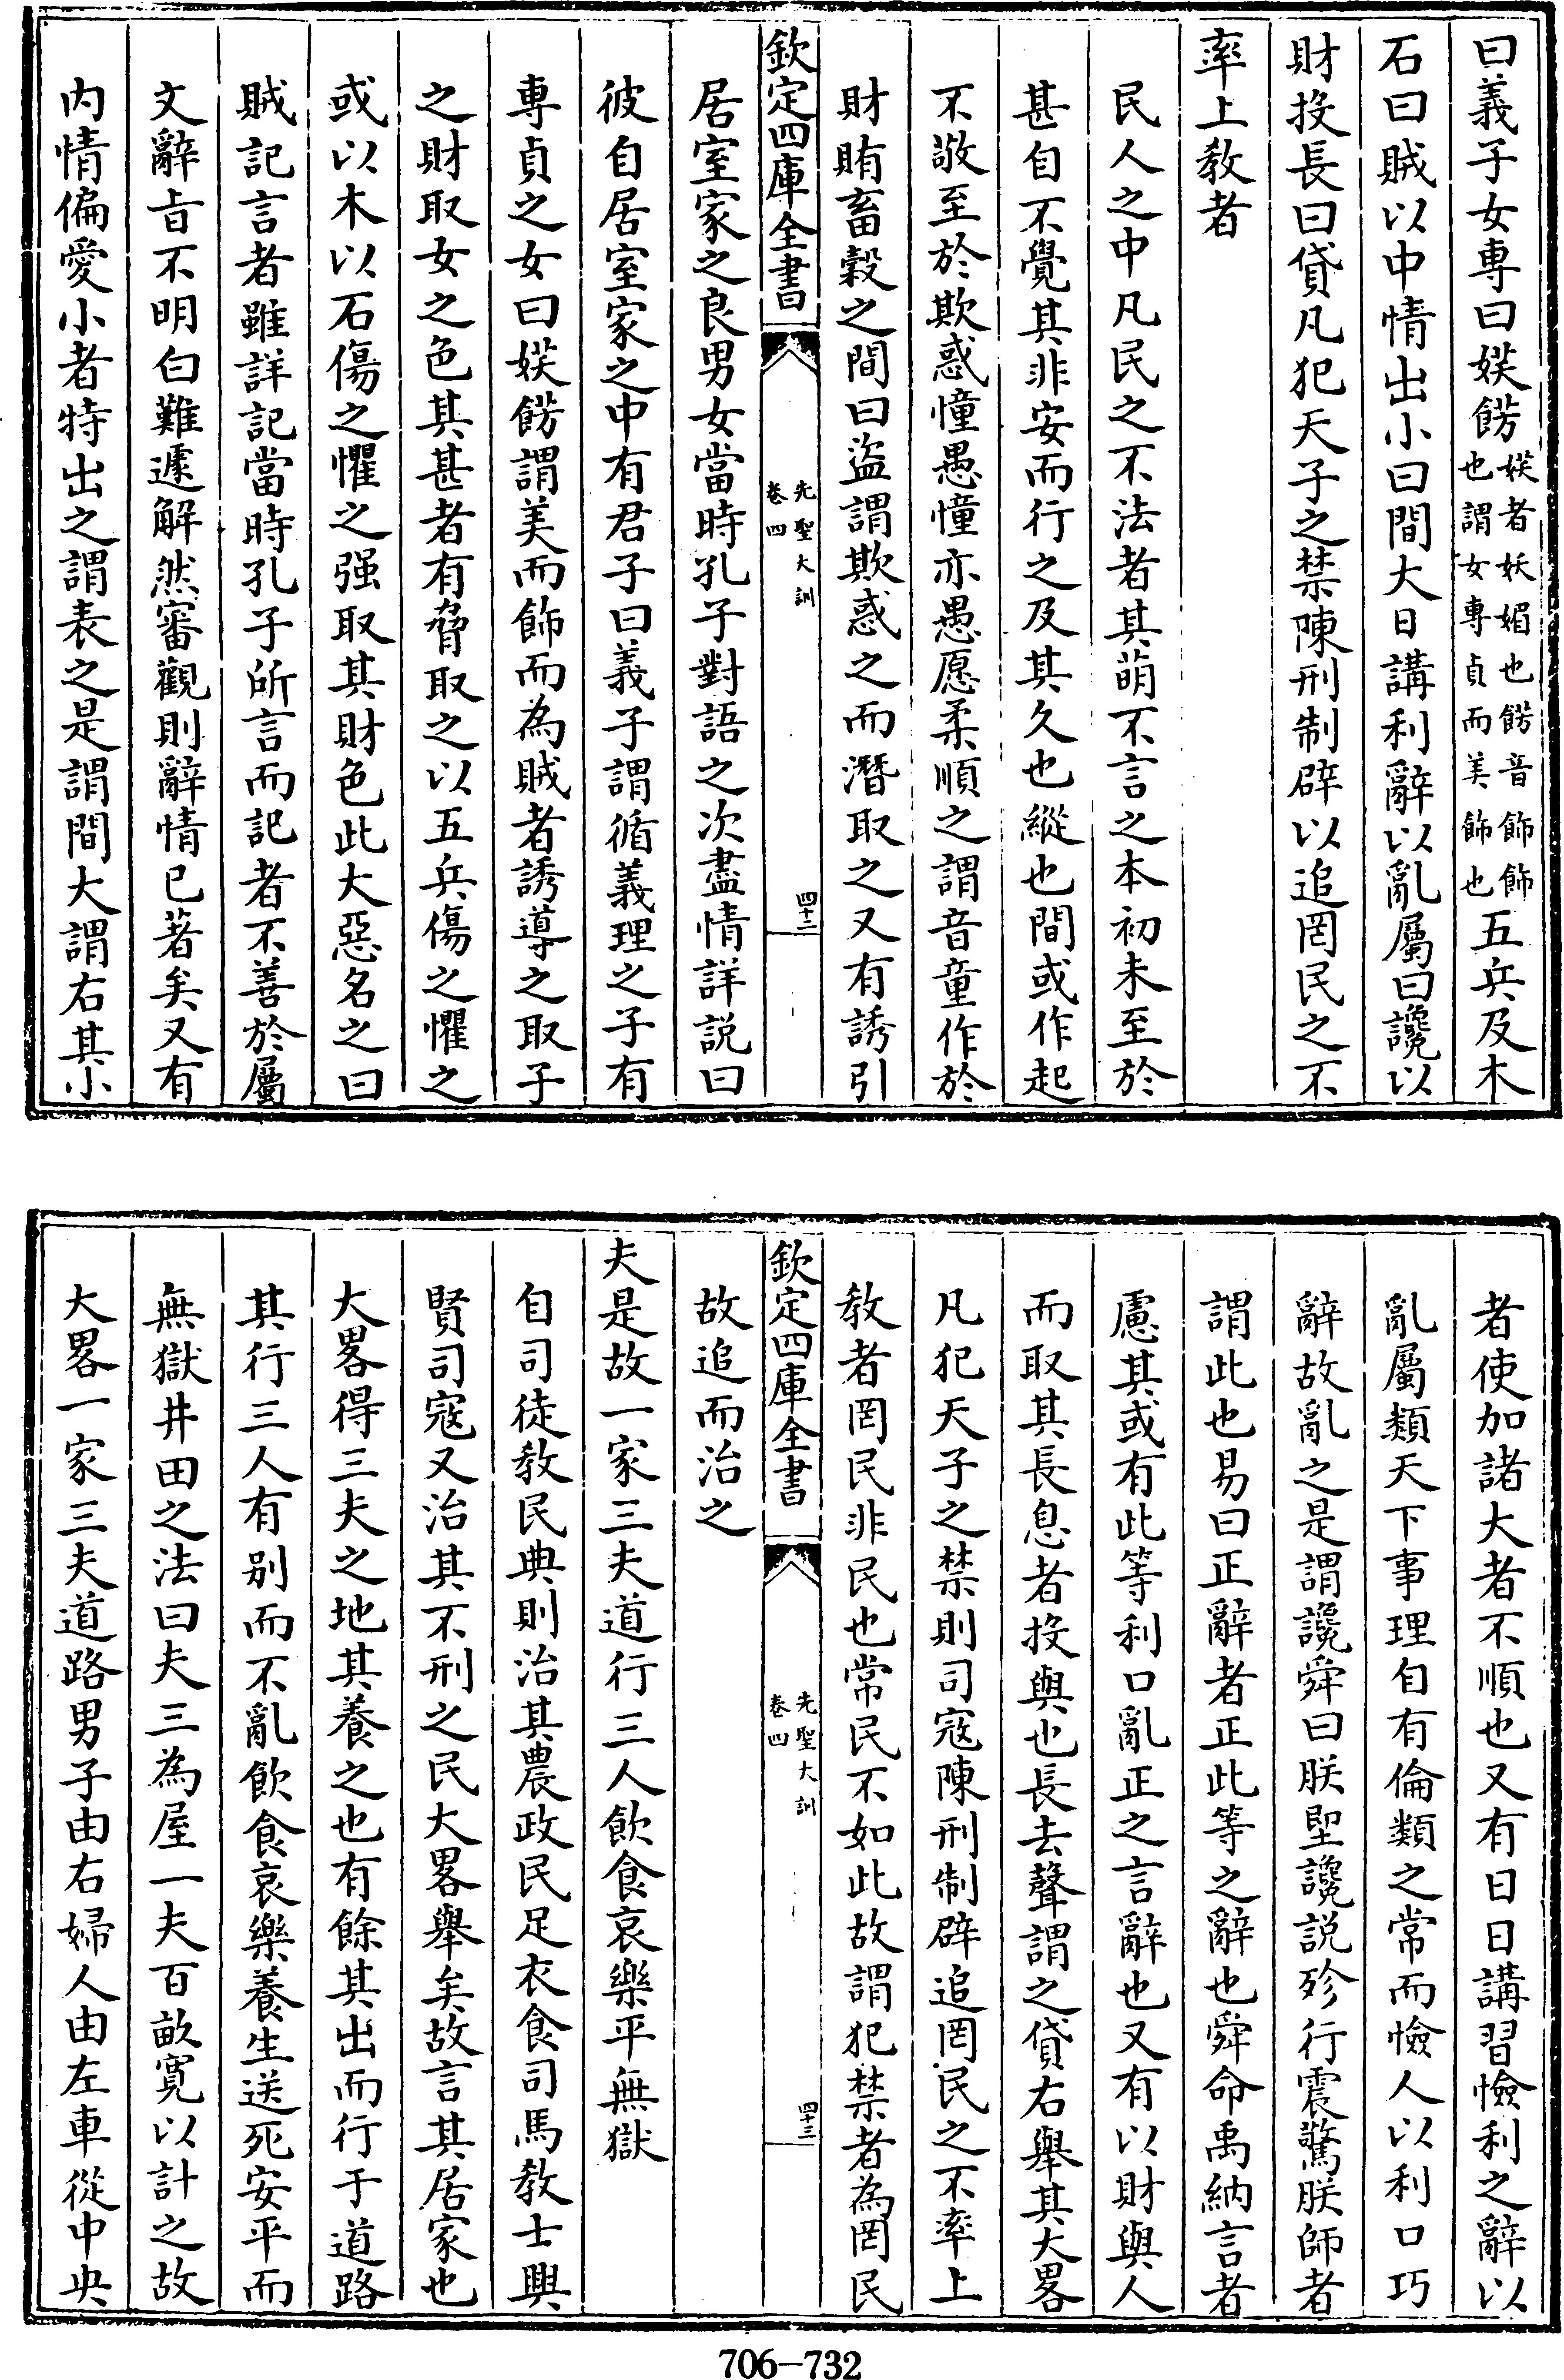 曰義子女專曰媄餝媄者妖媚也餝音飾飾也謂女專貞而美飾也五兵及木
石曰賊以中情出小曰間大日講利辭以亂屬曰讒以
財投長曰貸凡犯天子之禁陳刑制辟以追罔民之不
率上教者
民人之中凡民之不法者其萌不言之本初未至於
甚自不覺其非安而行之及其久也縱也間或作起
不敬至於欺惑憧愚憧亦愚愿柔順之謂音童作於
財賄畜穀之間曰盜謂欺惑之而潛取之又有誘引
欽定四庫全書
先聖大訓
卷四
四十二
居室家之良男女當時孔子對語之次盡情詳説曰
彼自居室家之中有君子曰義子謂循義理之子有
專貞之女曰媄餝謂美而飾而為賊者誘導之取子
之財取女之色其甚者有脅取之以五兵傷之懼之
或以木以石傷之懼之强取其財色此大惡名之曰
賊記言者雖詳記當時孔子所言而記者不善於屬
文辭㫖不明白難遽解然審觀則辭情已著矣又有
内情偏愛小者特出之謂表之是謂間大謂右其小
者使加諸大者不順也又有日日講習憸利之辭以
亂屬類天下事理自有倫類之常而憸人以利口巧
辭故亂之是謂讒舜曰朕堲讒説殄行震驚朕師者
謂此也易曰正辭者正此等之辭也舜命禹納言者
慮其或有此等利口亂正之言辭也又有以財與人
而取其長息者投與也長去聲謂之貸右舉其大畧
凡犯天子之禁則司寇陳刑制辟追罔民之不率上
教者罔民非民也常民不如此故謂犯禁者為罔民
欽定四庫全書
先聖大訓
卷四
四十三
故追而治之
夫是故一家三夫道行三人飲食哀樂平無獄
自司徒教民典則治其農政民足衣食司馬教士興
賢司寇又治其不刑之民大畧舉矣故言其居家也
大畧得三夫之地其養之也有餘其出而行于道路
其行三人有别而不亂飲食哀樂養生送死安平而
無獄井田之法曰夫三為屋一夫百畝寛以計之故
大畧一家三夫道路男子由右婦人由左車從中央
706-732